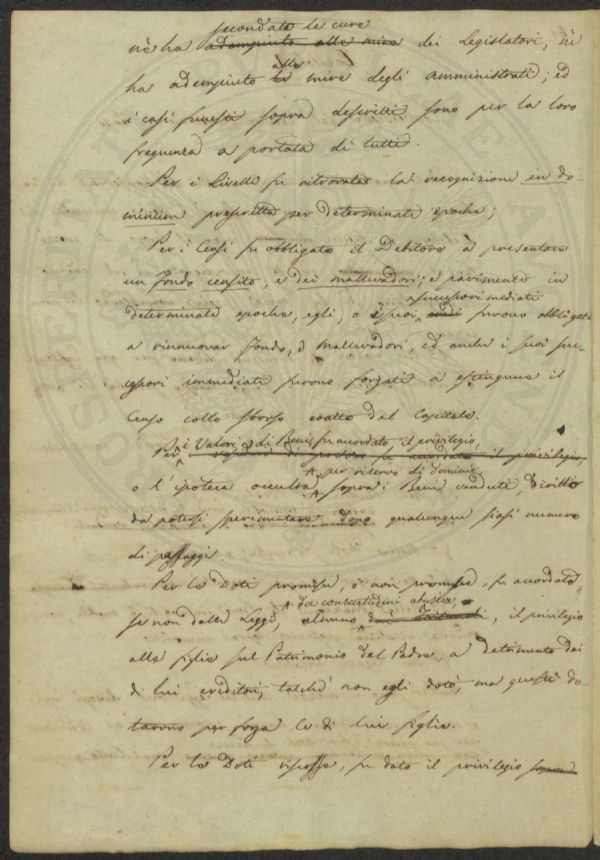 secondato le cure
nò ha adempiuto alle mire dei Legislatori, nè
alle
ha adempiuto le mire degli amministrati; ed
i casi funesti sopra descritti sono per la loro
frequenza a portata di tutti.
Per i Livelli fu ritrovata la recognizione in do-
minium prefissa per determinate epoche;
Per i Censi fu obbligato il Debitore a presentare
un Fondo censito, e dei mallevadori; e parimente in
successori mediati
determinate epoche, egli, o i suoi eredi furono obbligati
a rinnuovar Fondo, e Mallevadori, ed anche i suoi suc-
cessori immediati furono forzati a estinguere il
Censo collo sborso esatto del Capitale.
i Valori di Beni, fu accordato il privilegio,
Per fu accordato il privilegio,
per riservo di dominio
o l'ipoteca occulta sopra i Beni venduti, diritto
da potersi sperimentare dopo qualunque siasi numero
di passaggi.
Per le Doti promesse, o non promesse, fu accordato,
da consuetudini abusive,
se non dalle Leggi, almeno dai Tribunali, il privilegio
alle figlie sul Patrimonio del Padre, a detrimento dei
di lui creditori, talchè non egli dotò, ma questi do-
tarono per forza le di lui figlie.
Per le Doti, fu dato il privilegio